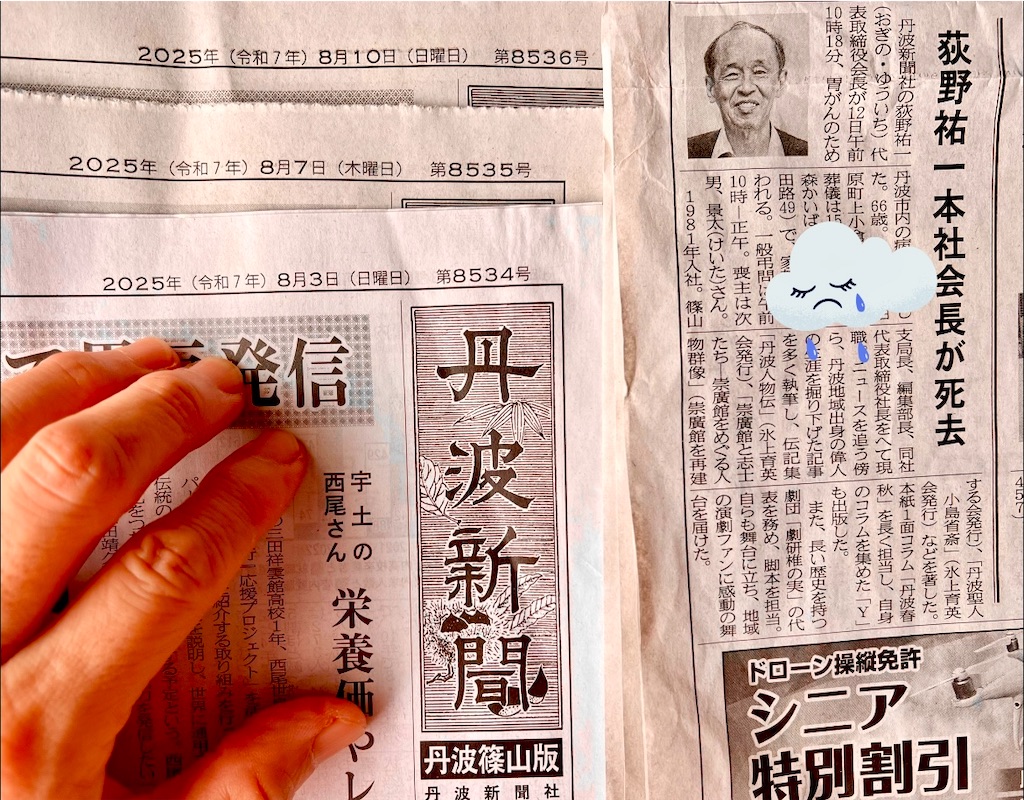 2025年（令和7年）8月10日（日曜日）　第8536号
2025年（令和7年）8月7日（木曜日）　第8535号
2025年（令和7年）8月3日（日曜日）　第8534号
発信
丹波新聞
丹波篠山版
丹波新聞社
宇土の
西尾さん
栄養価
やし
荻野祐一本社会長が死去
丹波新聞社の荻野祐一
（おぎの・ゆういち）代
表取締役会長が12日午前
10時18分、胃がんのため
丹波市内の病
た。66歳。
原町上小倉
葬儀は15
森かいば
田路49）で、家
われる。一般弔問は午前
10時―正午。喪主は次
男、景太（けいた）さん。
1981年入社。篠山
支局長、編集部長、同社
代表取締役社長をへて現
職。ニュースを追う傍
ら、丹波地域出身の偉人
の生涯を掘り下げた記事
を多く執筆し、伝記集
「丹波人物伝」（氷上育英
会発行）、「崇廣館と志士
たち―崇廣館をめぐる人
物群像」（崇廣館を再建
する会発行）、「丹波聖人
小島省斎」（氷上育英
会発行）などを著した。
本紙1面コラム「丹波春
秋」を長く担当し、自身
のコラムを集めた「Y」
も出版した。
また、長い歴史を持つ
劇団「劇研椎の実」の代
表を務め、脚本を担当。
自らも舞台に立ち、地域
の演劇ファンに感動の舞
台を届けた。
ドローン操縦免許
シニア
特別割引